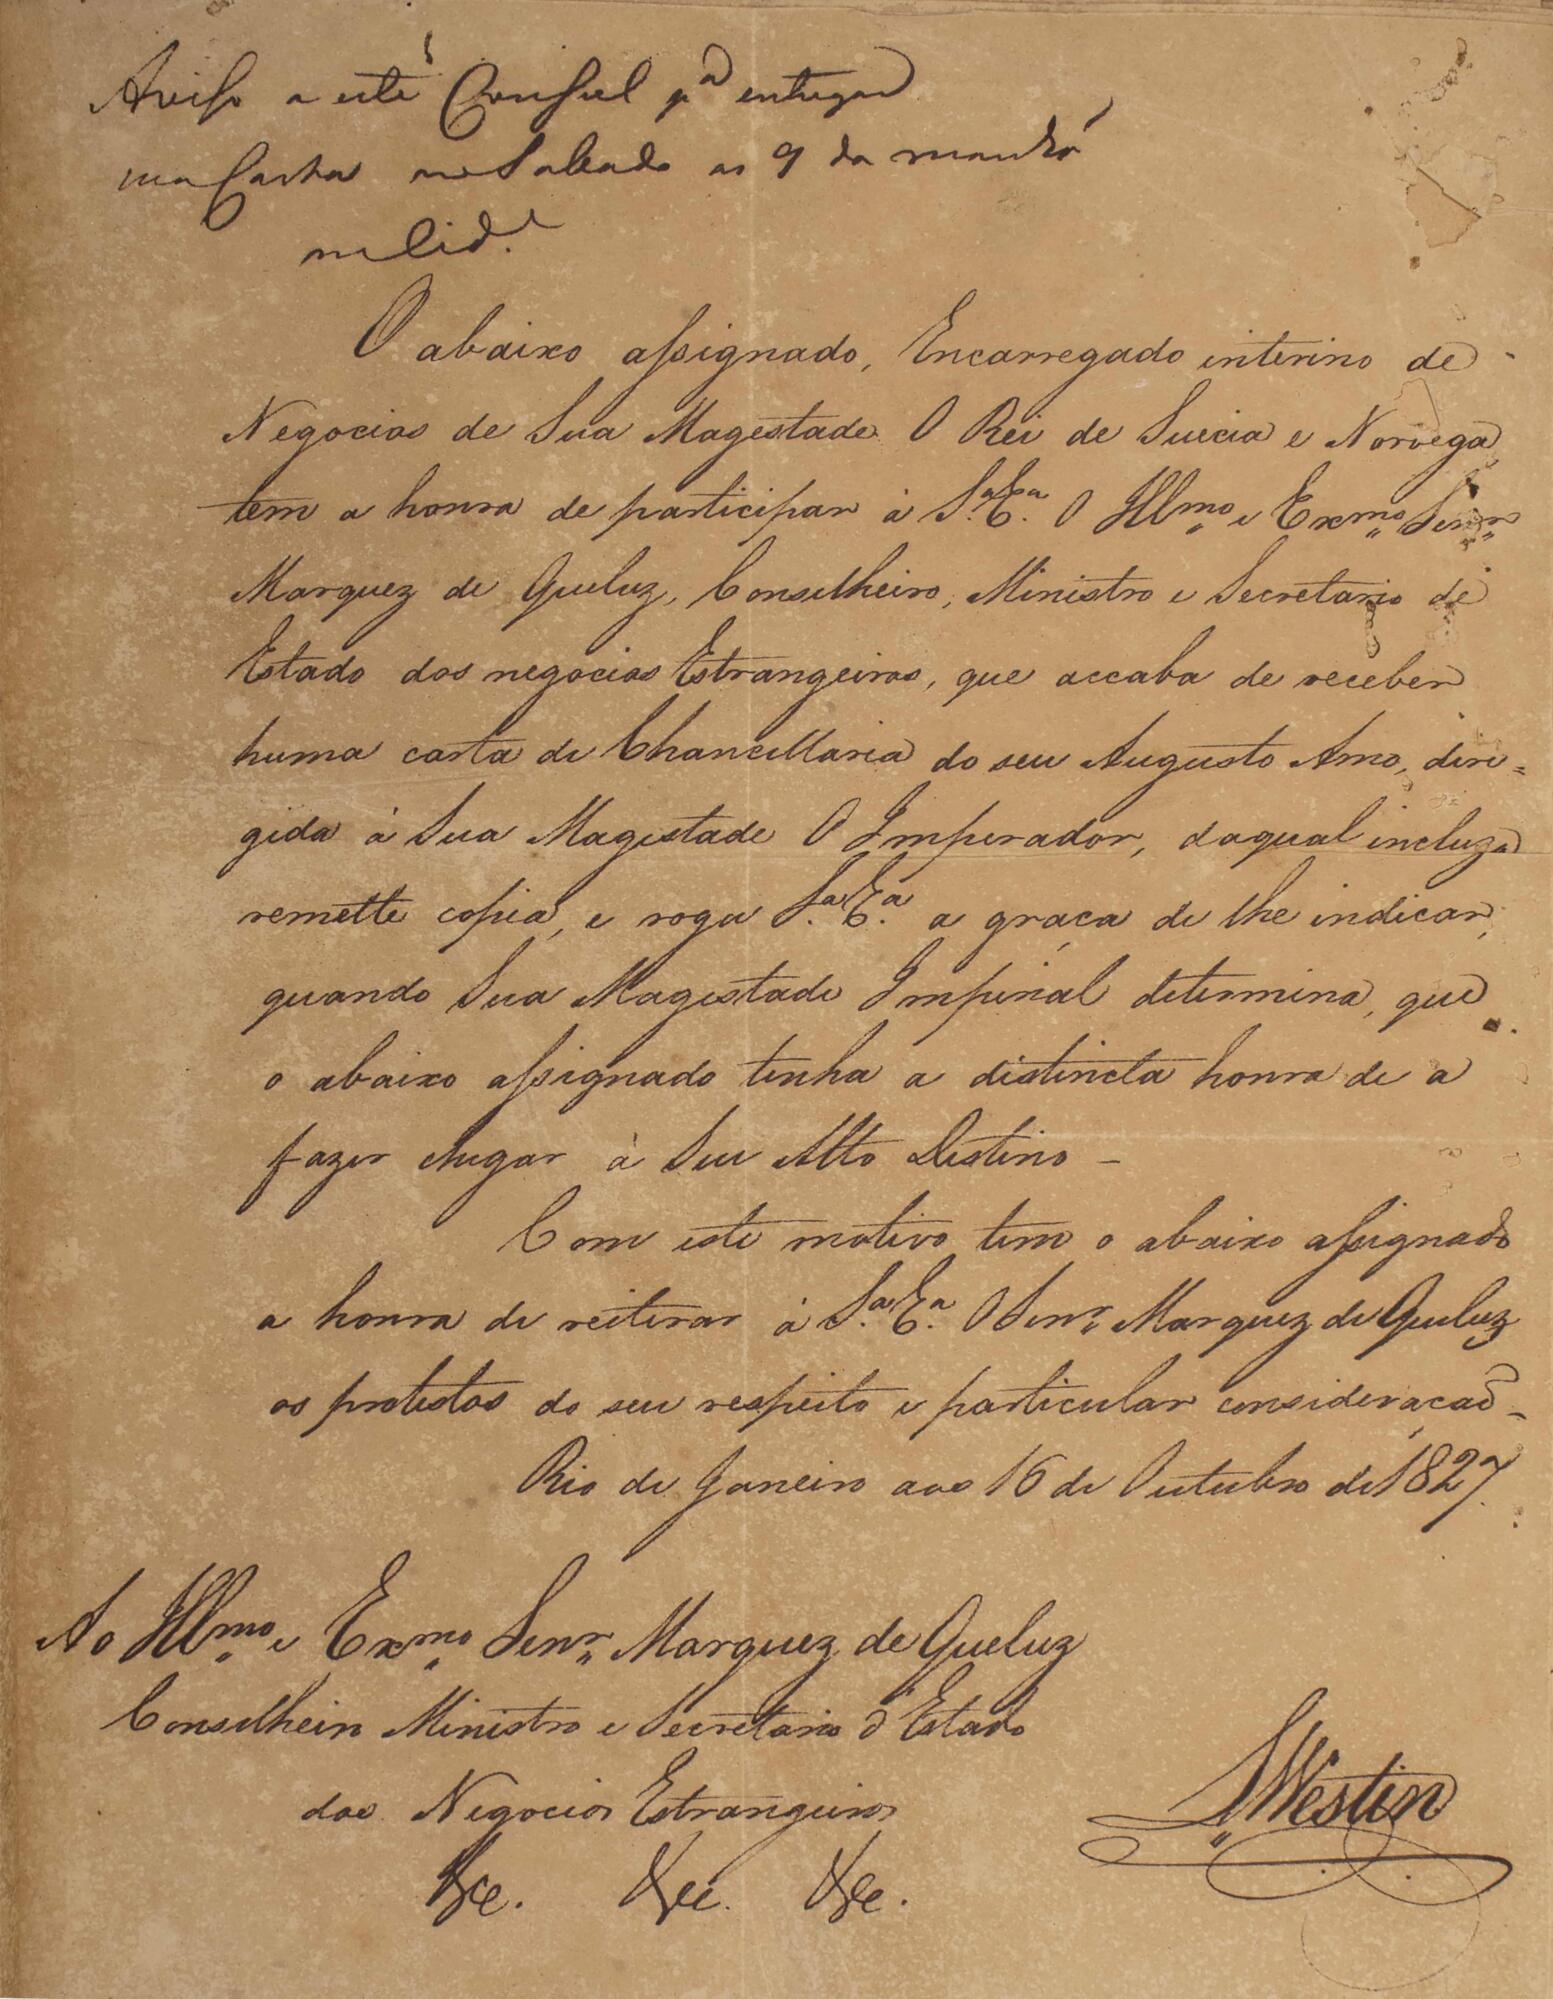 Aviso a este Consul pª entregar
na Carta no Sabado as 9 da manhã
na Cidᵉ
O abaixo assignado, Encarregado interino de
Negocios de Sua Magestade O Rei de Suecia e Norvega
tem a honra de participar à S.ª E.ª O Illmo e Exmo Senr
Marquez de Queluz, Conselheiro, Ministro e Secretario de
Estado dos negocios Estrangeiros, que accaba de receber
huma carta de Chancellaria do seu Augusto Amo, diri=
gida à Sua Magestade O Imperador, daqual incluza
remette copia, e roga S.ª E.ª a graça de lhe indicar,
quando Sua Magestade Imperial determina, que
o abaixo assignado tenha a distincta honra de a
fazer chegar à Seu Alto Destino –
Com este motivo tem o abaixo assignado
a honra de reiterar à S.ª E.ª O Senr Marquez de Queluz
os protestos do seu respeito e particular consideração –
Rio de Janeiro aos 16 de Outubro de 1827.
Ao Illmo e Exmo Senr Marquez de Queluz
Conselheiro Ministro e Secretario d'Estado
dos Negocios Estrangeiros
&c. &c. &c.
Westin